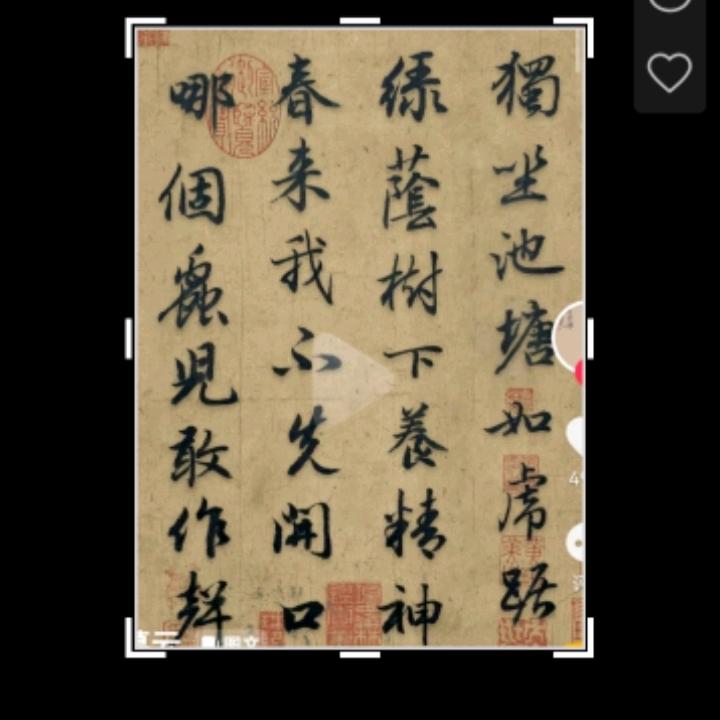 獨坐池塘如虎踞
綠蔭樹下養精神
春来我不先開口
哪個蟲兒敢作聲